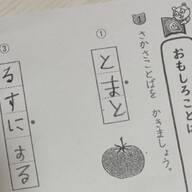 おもしろこと
1 さかさことばを かきましょう。
①
とまと
③
るすにする